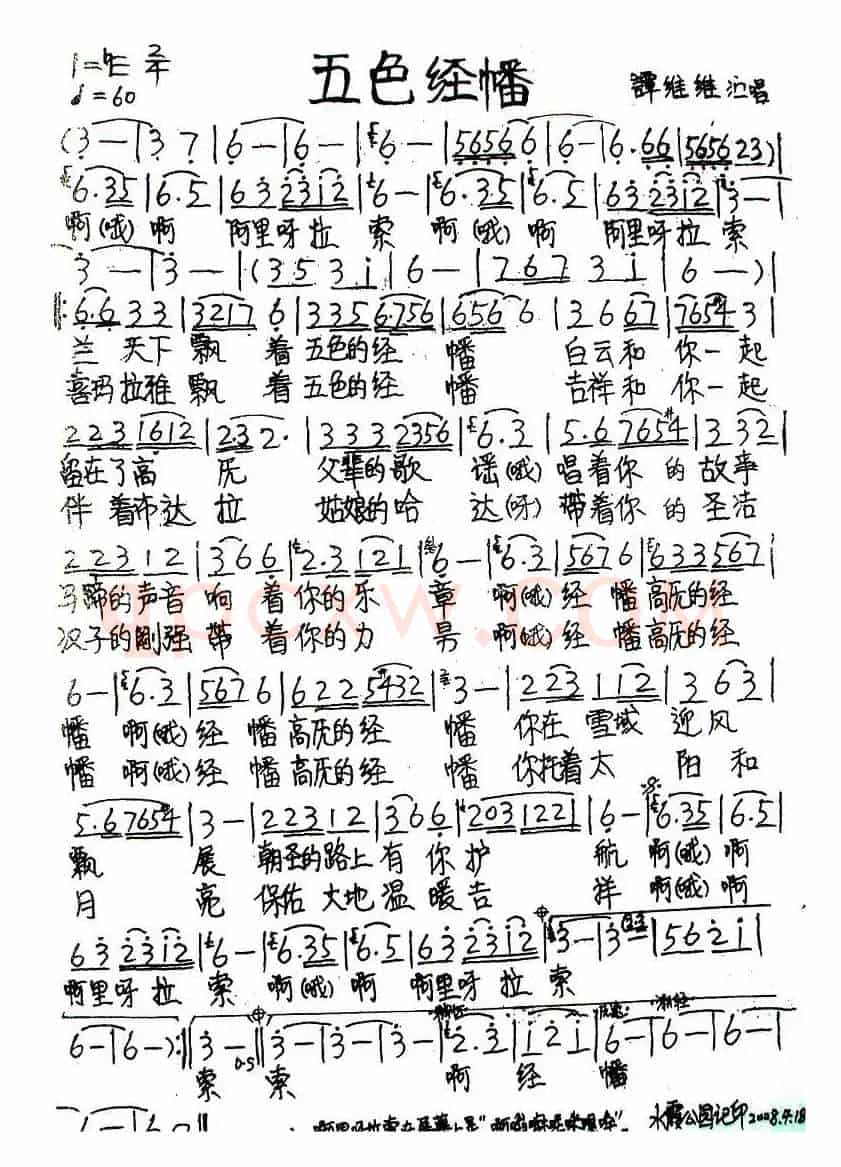 1=♭E 2/4
五色经幡
♩=60
譚维维 演唱
(3 — | 3 7 | 6 — | 6 — | 6 — | 5656 6 | 6 — | 6·66 | 5656 23) |
6·35 | 6·5 | 63 2312 | 6 — | 6·35 | 6·5 | 63 2312 | 3 — |
啊(哦)啊 阿里呀拉 索 啊(哦)啊 阿里呀拉 索
3 — | 3 — | (35 3i | 6 — | 767 3i | 6 —) |
‖: 6·6 33 | 3217 6 | 335 6·756 | 656 6 | 36 67 | 7654 3 |
兰 天下 飘 着 五色的经 幡 白云和 你一起
喜玛拉雅 飘 着 五色的经 幡 吉祥和 你一起
223 1612 | 2·3 2· | 333 2356 | 6·3 | 5·6 7654 | 3 32 |
留在了高 厡 父輩的歌 谣(哦) 唱着你 的 故事
伴着布达 拉 姑娘的哈 达(呀) 带着你 的 圣洁
223 12 | 36 6 | 2·3 121 | 6 — | 6·3 | 567 6 | 633 567 |
马蹄的声音 响 着 你的乐 章 啊(哦) 经 幡 高厡的经
汉子的刚强 带 着 你的力 啊(哦) 经 幡 高厡的经
6 — | 6·3 | 567 6 | 622 5432 | 3 — | 223 112 | 3 63 |
幡 啊(哦) 经 幡 高厡的经 幡 你在 雪域 迎 风
幡 啊(哦) 经 幡 高厡的经 幡 你托着太 阳 和
5·6 7654 | 3 — | 223 12 | 36 6 | 203 122 | 6 — | 6·35 | 6·5 |
飘 展 朝圣的路上 有 你 护 航 啊(哦) 啊
月 亮 保佑 大地 温 暖 吉 祥 啊(哦) 啊
63 2312 | 6 — | 6·35 | 6·5 | 63 2312 | 3 — | 3 — | 56 2i |
啊里呀 拉 索 啊(哦) 啊 啊里呀 拉 索
6 — | 6 —) :‖ 3 — ‖ 3 — | 3 — | 3 — | 2·3 | i 2 i | 6 — | 6 — | 6 — |
D·S
索 索 啊 经 幡
6 — | 6 0 ‖
水霞公园记印 2008.4.18
qpcxw.com